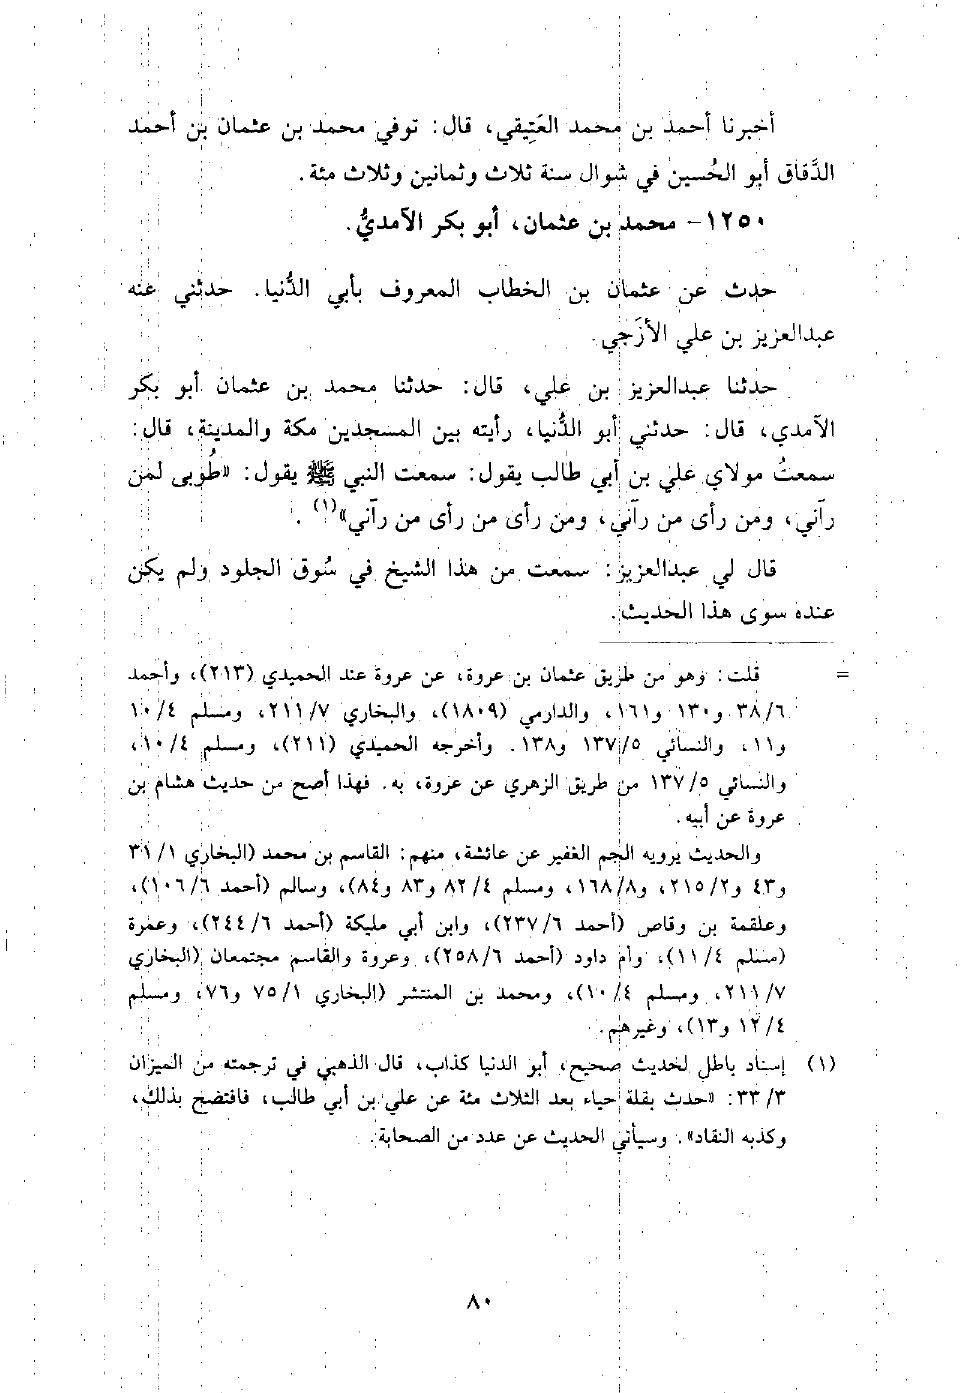 أخبرنا أحمد بن محمد العَتِيقي، قال: توفي محمد بن عثمان بن أحمد
الدَّقاق أبو الحُسين في شوال سنة ثلاث وثمانين وثلاث مئة.
١٢٥٠- محمد بن عثمان، أبو بكر الآمديُّ.
حدث عن عثمان بن الخطاب المعروف بأبي الدُّنيا. حدثني عنه
عبدالعزيز بن علي الأزَجي.
حدثنا عبدالعزيز بن علي، قال: حدثنا محمد بن عثمان أبو بكر
الآمدي، قال: حدثني أبو الدُّنيا، رأيته بين المسجدين مكة والمدينة، قال:
سمعتُ مولاي علي بن أبي طالب يقول: سمعت النبي ﷺ يقول: «طُوبى لمن
رآني، ومن رأى من رآني، ومن رأى من رأى من رآني»(١) .
قال لي عبدالعزيز: سمعت من هذا الشيخ في سُوق الجلود ولم يكن
عنده سوى هذا الحديث.
= قلت: وهو من طريق عثمان بن عروة، عن عروة عند الحميدي (٢١٣)، وأحمد
٦/ ٣٨ و١٣٠ و١٦١، والدارمي (١٨٠٩)، والبخاري ٧/ ٢١١، ومسلم ٤/ ١٠
و١١، والنسائي ٥/ ١٣٧ و١٣٨. وأخرجه الحميدي (٢١١)، ومسلم ٤/ ١٠،
والنسائي ٥/ ١٣٧ من طريق الزهري عن عروة، به. فهذا أصح من حديث هشام بن
عروة عن أبيه.
والحديث يرويه الجم الغفير عن عائشة، منهم: القاسم بن محمد (البخاري ١/ ٣١
و٤٣ و٢/ ٢١٥، و٨/ ١٦٨، ومسلم ٤/ ٨٢ و٨٣ و٨٤)، وسالم (أحمد ٦/ ١٠٦)،
وعلقمة بن وقاص (أحمد ٦/ ٢٣٧)، وابن أبي مليكة (أحمد ٦/ ٢٤٤)، وعمرة
(مسلم ٤/ ١١)، وأم داود (أحمد ٦/ ٢٥٨)، وعروة والقاسم مجتمعان (البخاري
٧/ ٢١١، ومسلم ٤/ ١٠)، ومحمد بن المنتشر (البخاري ١/ ٧٥ و٧٦، ومسلم
٤/ ١٢ و١٣)، وغيرهم.
(١) إسناد باطل لحديث صحيح، أبو الدنيا كذاب، قال الذهبي في ترجمته من الميزان
٣/ ٣٣: «حدث بقلة حياء بعد الثلاث مئة عن علي بن أبي طالب، فافتضح بذلك،
وكذبه النقاد». وسيأتي الحديث عن عدد من الصحابة.
٨٠